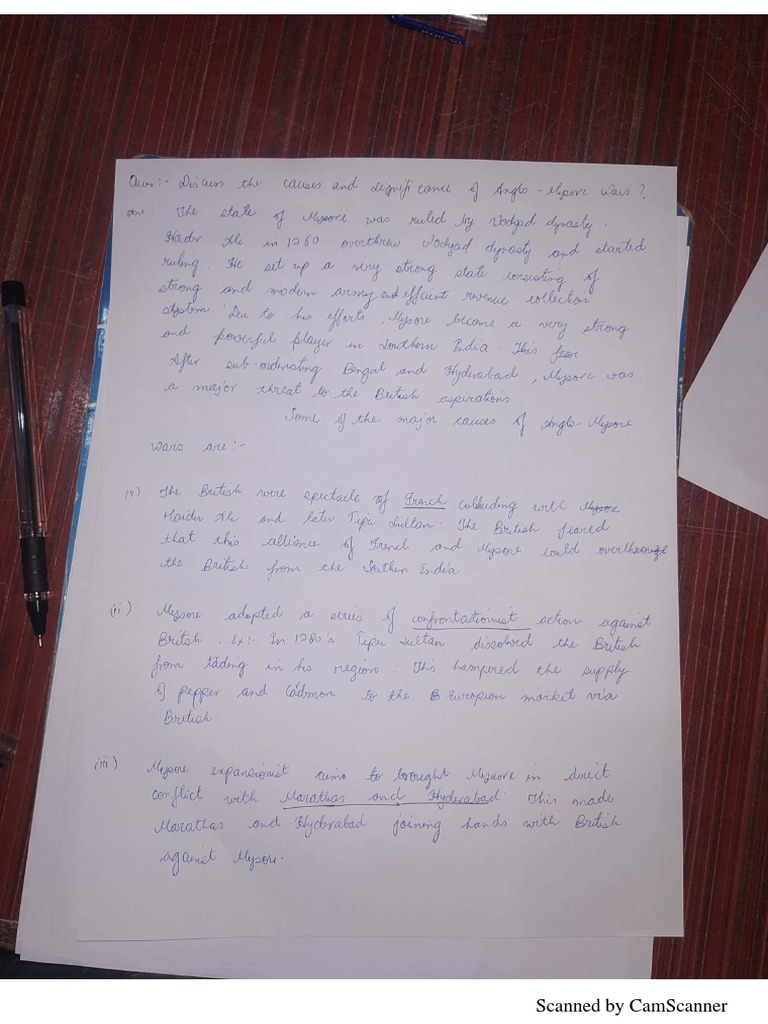 Ques:- Discuss the causes and significance of Anglo-Mysore Wars?
Ans: The state of Mysore was ruled by Wodyad dynasty.
Haidr Ali in 1760 overthrew Wodyad dynasty and started
ruling. He set up a very strong state consisting of
strong and modern army and efficient revenue collection
system. Due to his efforts, Mysore became a very strong
and powerful player in Southern India. This fear
After sub-ordinating Bengal and Hyderabad, Mysore was
a major threat to the British aspirations.
Some of the major causes of Anglo-Mysore
wars are:-
(i) The British were spectacle of French colluiding with Mysore
Haidu Ali and later Tipu Sultan. The British feared
that this alliance of French and Mysore could overthrough
the British from the Southern India
(ii) Mysore adopted a series of confrontationist action against
British. Ex:- In 1780's Tipu Sultan dissolved the British
from tading in his region. This hampered the supply
of pepper and Cadmon to the B Europion market via
British
(iii) Mysore expansionist aims to brought Mysore in direct
conflict with Marathas and Hyderabad. This made
Marathas and Hyderabad joining hands with British
against Mysore.
Scanned by CamScanner